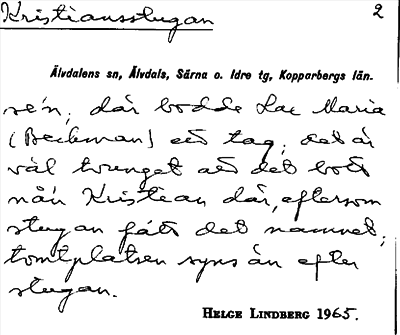 Kristiansstugan 2
Älvdalens sn, Älvdals, Särna o. Idre tg, Kopparbergs län.
sen, där bodde Lac Maria
(Beckman) ett tag; det är
väl tvunget att det bott
nån Kristian där, eftersom
stugan fått det namnet;
tomtplatsen syns än efter
stugan.
HELGE LINDBERG 1965.